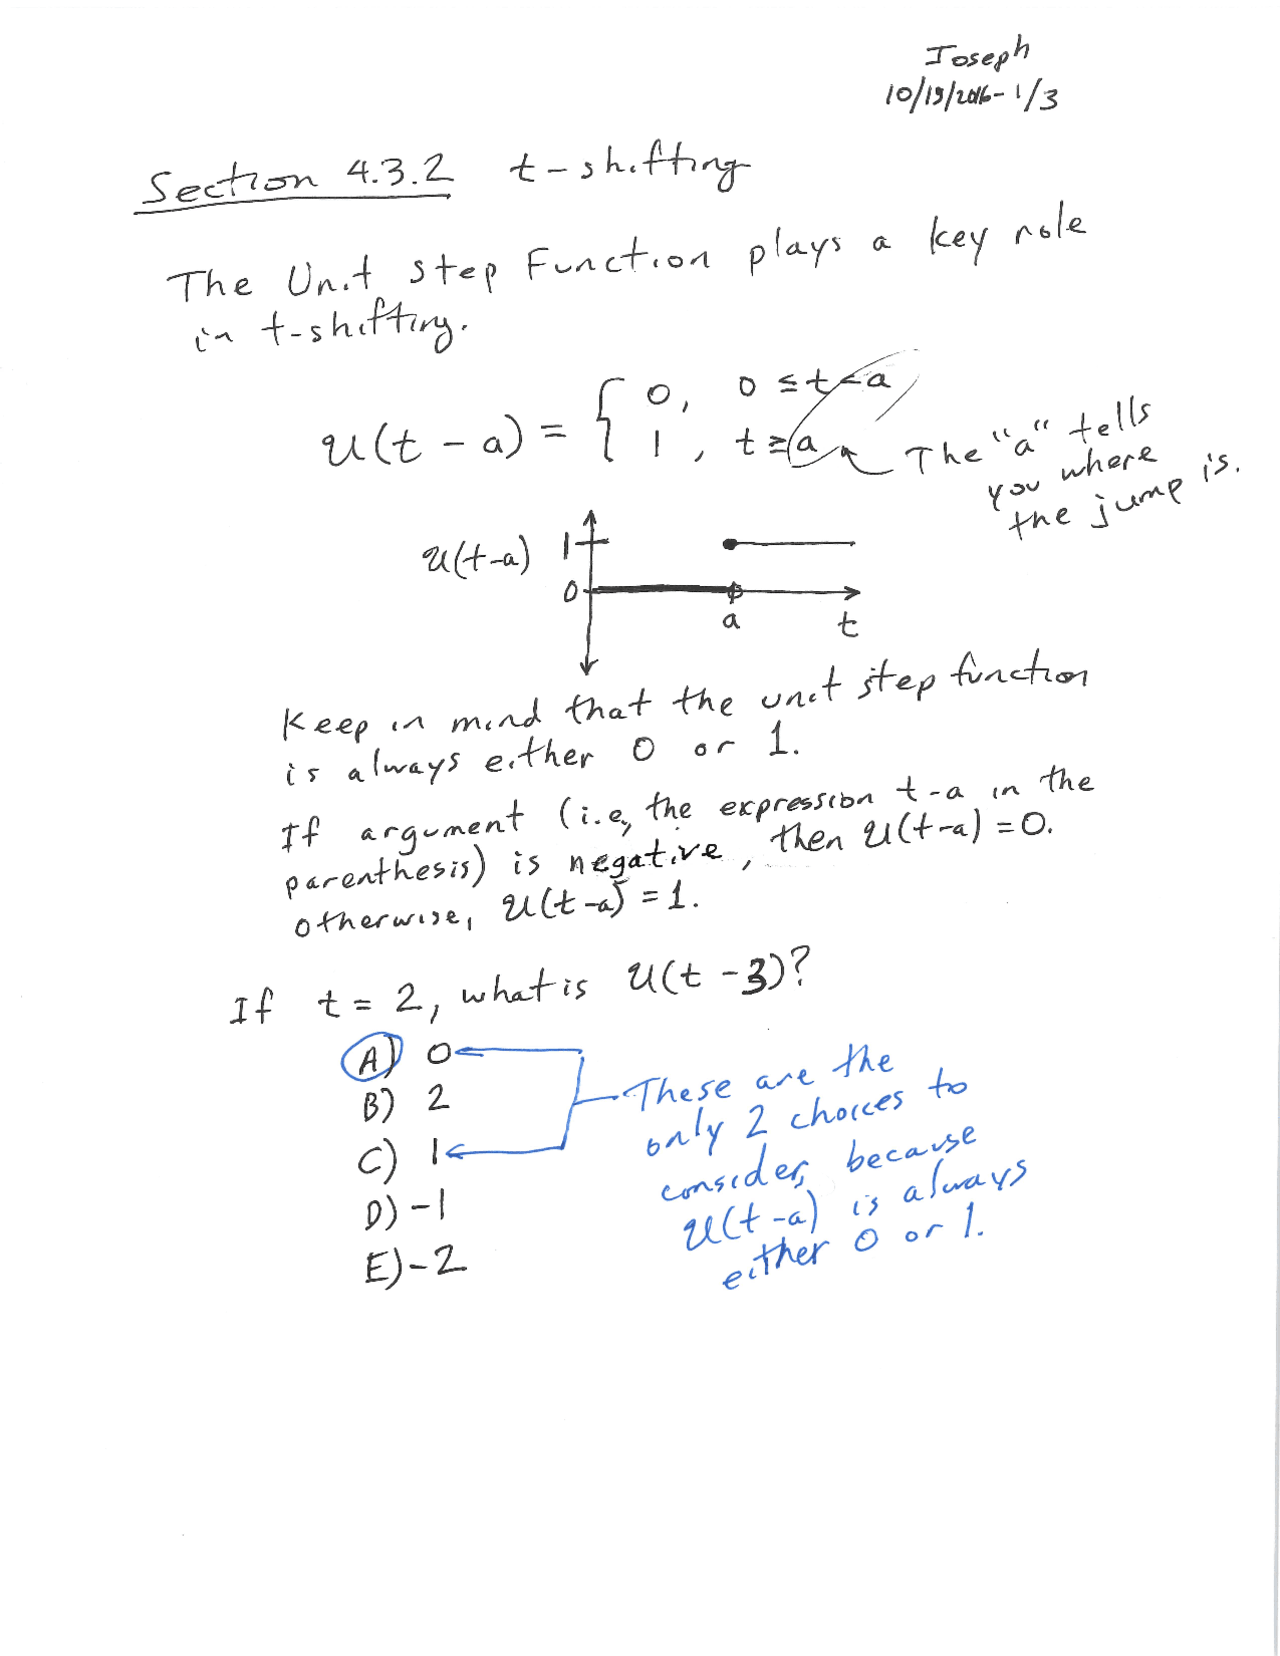 Joseph
10/19/2016 - 1/3
Section 4.3.2 t-shifting
The Unit Step Function plays a key role
in t-shifting.
𝒰(t - a) = { 0, 0 ≤ t < a
1, t ≥ a
The "a" tells
you where
the jump is.
𝒰(t-a) 1
0
a t
Keep in mind that the unit step function
is always either 0 or 1.
If argument (i.e, the expression t-a in the
parenthesis) is negative, then 𝒰(t-a) = 0.
otherwise, 𝒰(t-a) = 1.
If t = 2, what is 𝒰(t - 3)?
A) 0
B) 2
C) 1
D) -1
E) -2
These are the
only 2 choices to
consider, because
𝒰(t-a) is always
either 0 or 1.